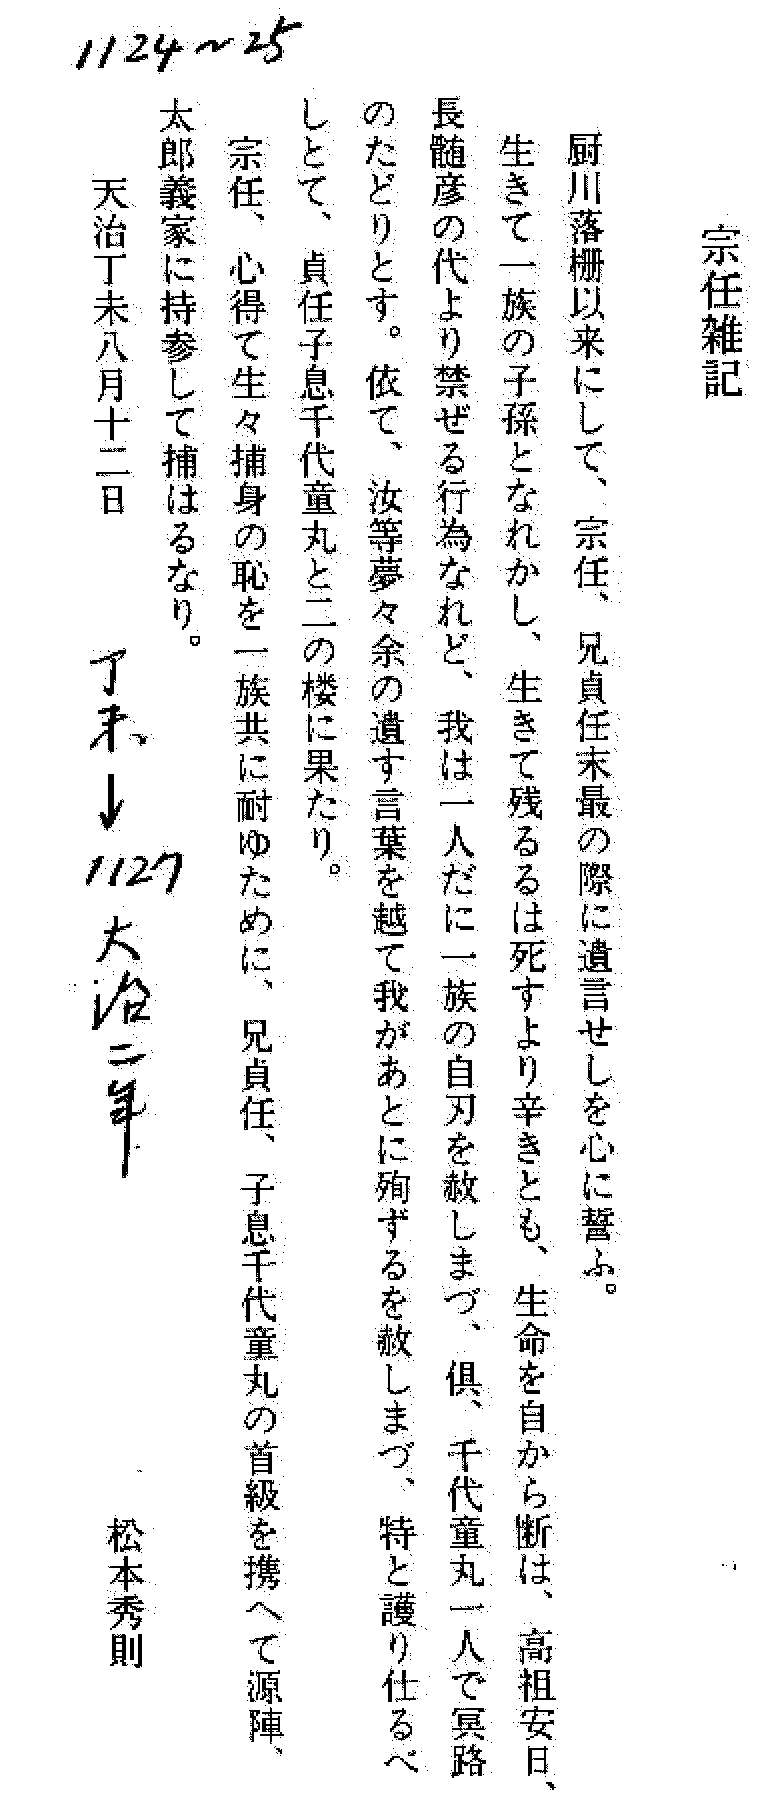 宗任雑記
厨川落柵以来にして、宗任、兄貞任末最の際に遺言せしを心に誓ふ。
生きて一族の子孫となれかし、生きて残るるは死すより辛きとも、生命を自から断は、高祖安日、
長髄彦の代より禁ぜる行為なれど、我は一人だに一族の自刃を赦しまづ、倶、千代童丸一人で冥路
のたどりとす。依て、汝等夢々余の遺す言葉を越て我があとに殉ずるを赦しまづ、特と護り仕るべ
しとて、貞任子息千代童丸と二の楼に果たり。
宗任、心得て生々捕身の恥を一族共に耐ゆために、兄貞任、子息千代童丸の首級を携へて源陣、
太郎義家に持参して捕はるなり。
天治丁未八月十二日
松本秀則
1124〜25
丁未↓1127大治二年